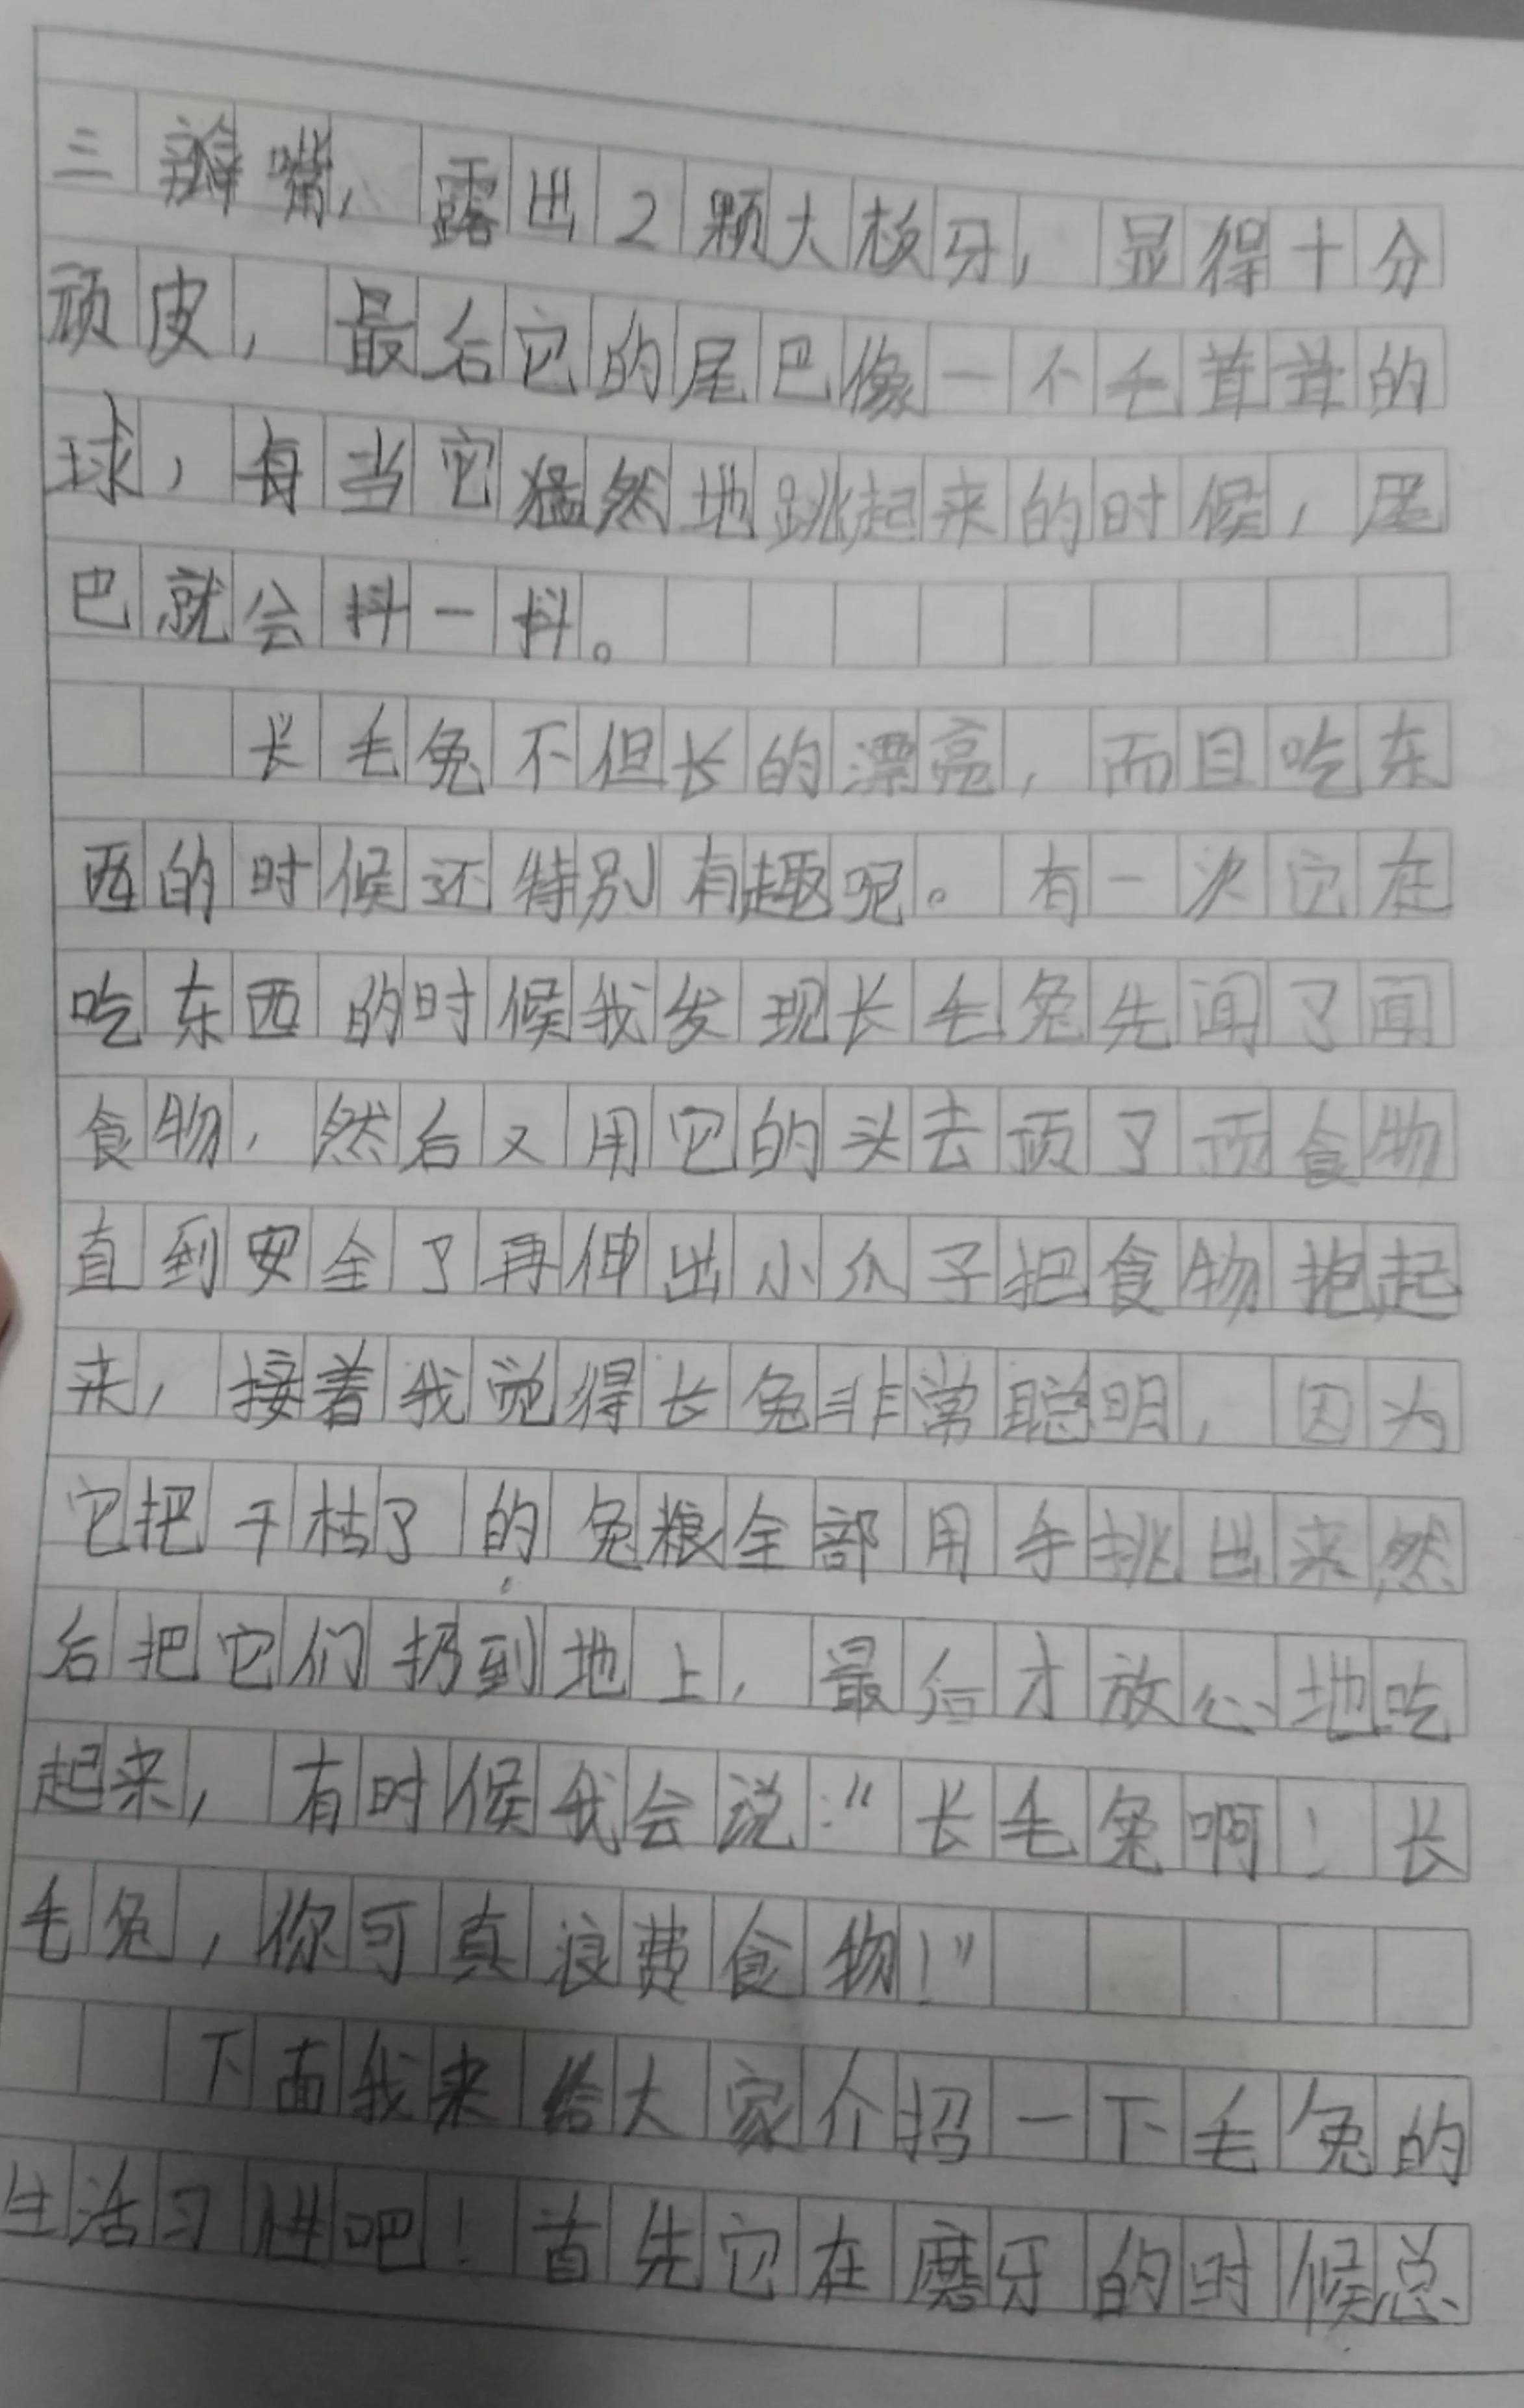 三瓣嘴，露出2颗大板牙，显得十分
顽皮，最后它的尾巴像一个毛茸茸的
球，每当它猛然地跳起来的时候，尾
巴就会抖一抖。
长毛兔不但长的漂亮，而且吃东
西的时候还特别有趣呢。有一次它在
吃东西的时候我发现长毛兔先闻了闻
食物，然后又用它的头去顶了顶食物
直到安全了再伸出小爪子把食物抱起
来，接着我觉得长兔非常聪明，因为
它把干枯了的兔粮全部用手挑出来然
后把它们扔到地上，最后才放心地吃
起来，有时候我会说：“长毛兔啊！长
毛兔，你可真浪费食物！”
下面我来给大家介绍一下毛兔的
生活习性吧！首先它在磨牙的时候总